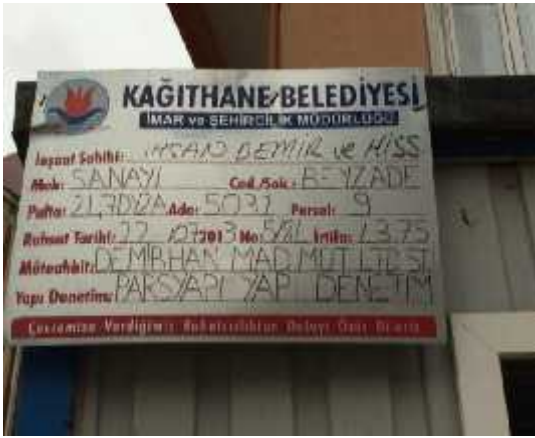 KAĞITHANE BELEDİYESİ
İMAR ve ŞEHİRCİLİK MÜDÜRLÜĞÜ
İnşaat Sahibi: İHSAN DEMİR ve HİSS
Mah: SANAYİ Cad./Sok.: BEYZADE
Pafta: Ada: 5031 Parsel: 9
Ruhsat Tarihi: 22 2013 No: İrtifa: 13.75
Müteahhit: DEMİRHAN MAD MÜT LTD ŞTİ
Yapı Denetim: PARSYAPI YAP DENETİM
Çevremize Verdiğimiz Rahatsızlıktan Dolayı Özür Dileriz